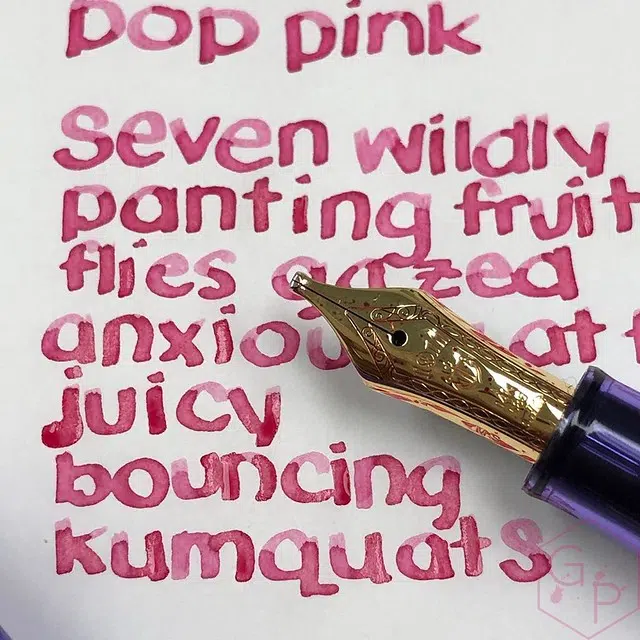 pop pink
seven wildly
panting fruit
flies gazed
anxiously at t
juicy
bouncing
kumquats
GP